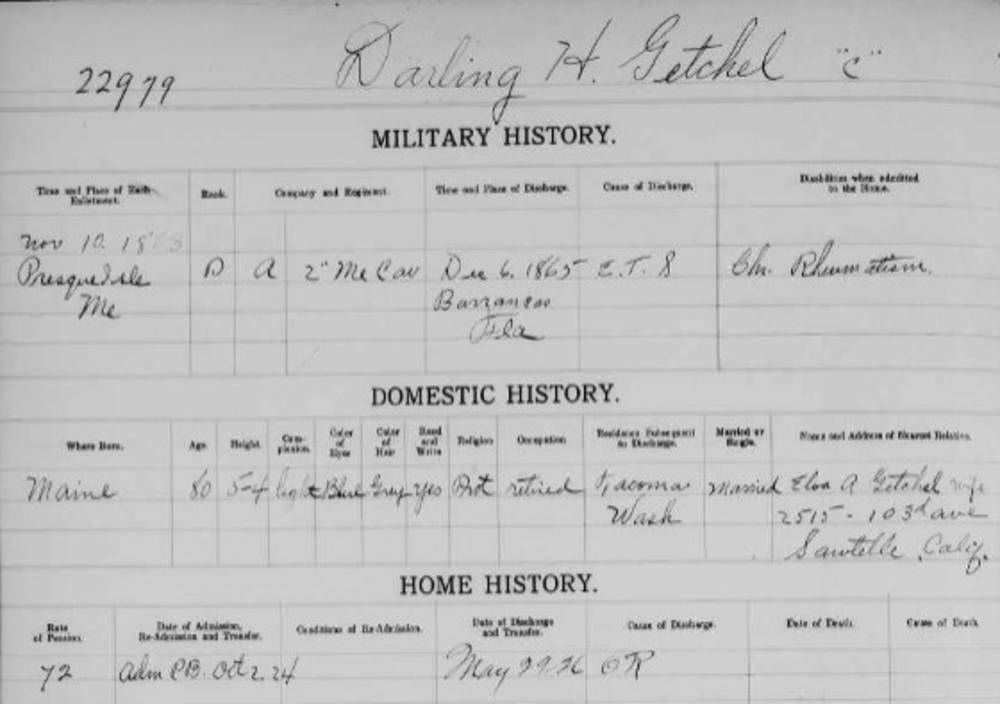 22979 Darling H. Getchel "C"
MILITARY HISTORY.
Time and Place of Each Enlistment. Rank. Company and Regiment. Time and Place of Discharge. Cause of Discharge. Disabilities when admitted to the Home.
Nov 10. 186
Presque Isle A 2" Me Cav Dec 6. 1865 E. T. S Chr. Rheumatism.
Me Barrancas
Fla
DOMESTIC HISTORY.
Where Born. Age. Height. Complexion. Color of Eyes Color of Hair Read and Write Religion Occupation Residence Subsequent to Discharge. Married or Single. Name and Address of Nearest Relative.
Maine 80 5-4 light Blue Grey yes Prot retired Tacoma married A Getchel wife
Wash 2515 - 103d ave
Sawtelle Calif.
HOME HISTORY.
Rate of Pension. Date of Admission, Re-Admission and Transfer. Conditions of Re-Admission. Date of Discharge and Transfer. Cause of Discharge. Date of Death. Cause of Death
72 Adm P.B. Oct 2. 24 May 29-26 OR